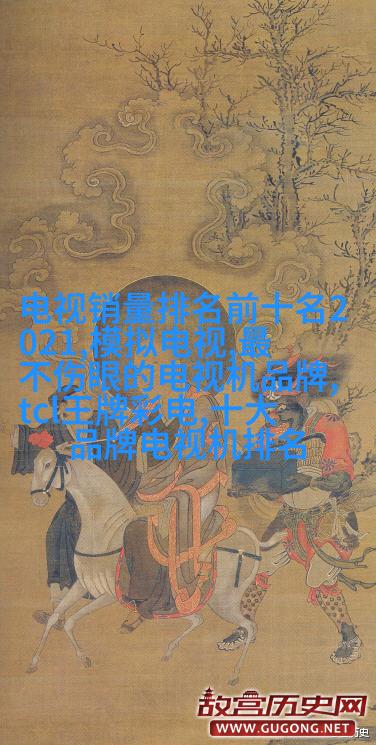 电视销量排名前十名2
021,模拟电视,最
不伤眼的电视机品牌,
tcl王牌彩电,十大
品牌电视机排名
故宫历史网
WWW.GUGONG.NET
历史